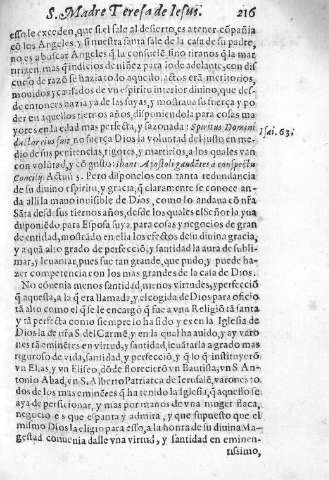 S. Madre Teresa de Iesus. 216
esso le exceden, que si el sale al desierto, es a tener cõpañia
cõ los Angeles, y si nuestra santa sale de la casa de su padre,
no es a buscar Angeles q̃ la consuelẽ, sino tiranos q̃ la mar
tirizen mas q̃ indicios de niñez para lo de adelante, con dis
curso de razõ se hazia todo aquello: actos erã meritorios,
mouidos y causados de vn espiritu interior diuino, que des-
de entonces hazia ya de las suyas, y mostraua su fuerça y po
der en aquellos tiernos años, disponiendola para cosas ma
yores en la edad mas perfecta, y sazonada: Spiritus Domini
ductor eius fuit, no fuerça Dios la voluntad del justo en me- Isai. 63.
dio de sus penitencias, rigores, y martirios, a los quales van
con volũtad, y cõ gusto: ibant Apostoli gaudẽtes a conspectu
Concilij. Actuũ 5. Pero disponelos con tanta redundancia
de su diuino espiritu, y gracia, q̃ claramente se conoce an-
da alli la mano inuisible de Dios, como lo andaua cõ nr̃a
Sãta desde sus tiernos años, desde los quales el Señor la yua
disponiẽdo para Esposa suya, para cosas y negocios de gran
de entidad, mostrãdo en ella los efectos de su diuina gracia,
y a quã alto grado de perfecciõ, y santidad la auia de subli-
mar, y leuantar, pues fue tan grande, que pudo, y puede ha-
zer competencia con los mas grandes de la casa de Dios.
No cõuenia menos santidad, menos virtudes, y perfecciõ
q̃ aquesta, a la q̃ era llamada, y elcogida de Dios para oficio
tã alto como el q̃ se le encargó q̃ fue a vna Religiõ tã santa
y tã perfecta como siempre lo ha sido y es en la Iglesia de
Dios la de nr̃a S. del Carmẽ, y en la qual ha auido, y ay varo
nes tã eminẽtes en virtud, y santidad, leuãtarla a grado mas
riguroso de vida, santidad, y perfecciõ, y q̃ lo q̃ instituyerõ
vn Elias, y vn Eliseo, dõde florecierõ vn Bautista, vn S. Ant
onio Abad, vn S. Alberto Patriarca de Ierusalẽ, varones to
dos de los mas eminẽtes q̃ ha tenido la Iglesia, q̃ aquello se
aya de perficionar, y mas por manos de vna muger flaca,
negocio es que espanta y admira, y que supuesto que el
mismo Dios la eligio para esso, a la honra de su diuina Ma-
gestad conuenia dalle vna virtud, y santidad en eminen-
tissimo,